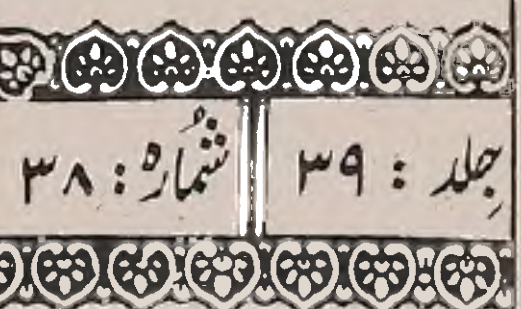 جِلد : ۳۹ شُمارہ : ۳۸